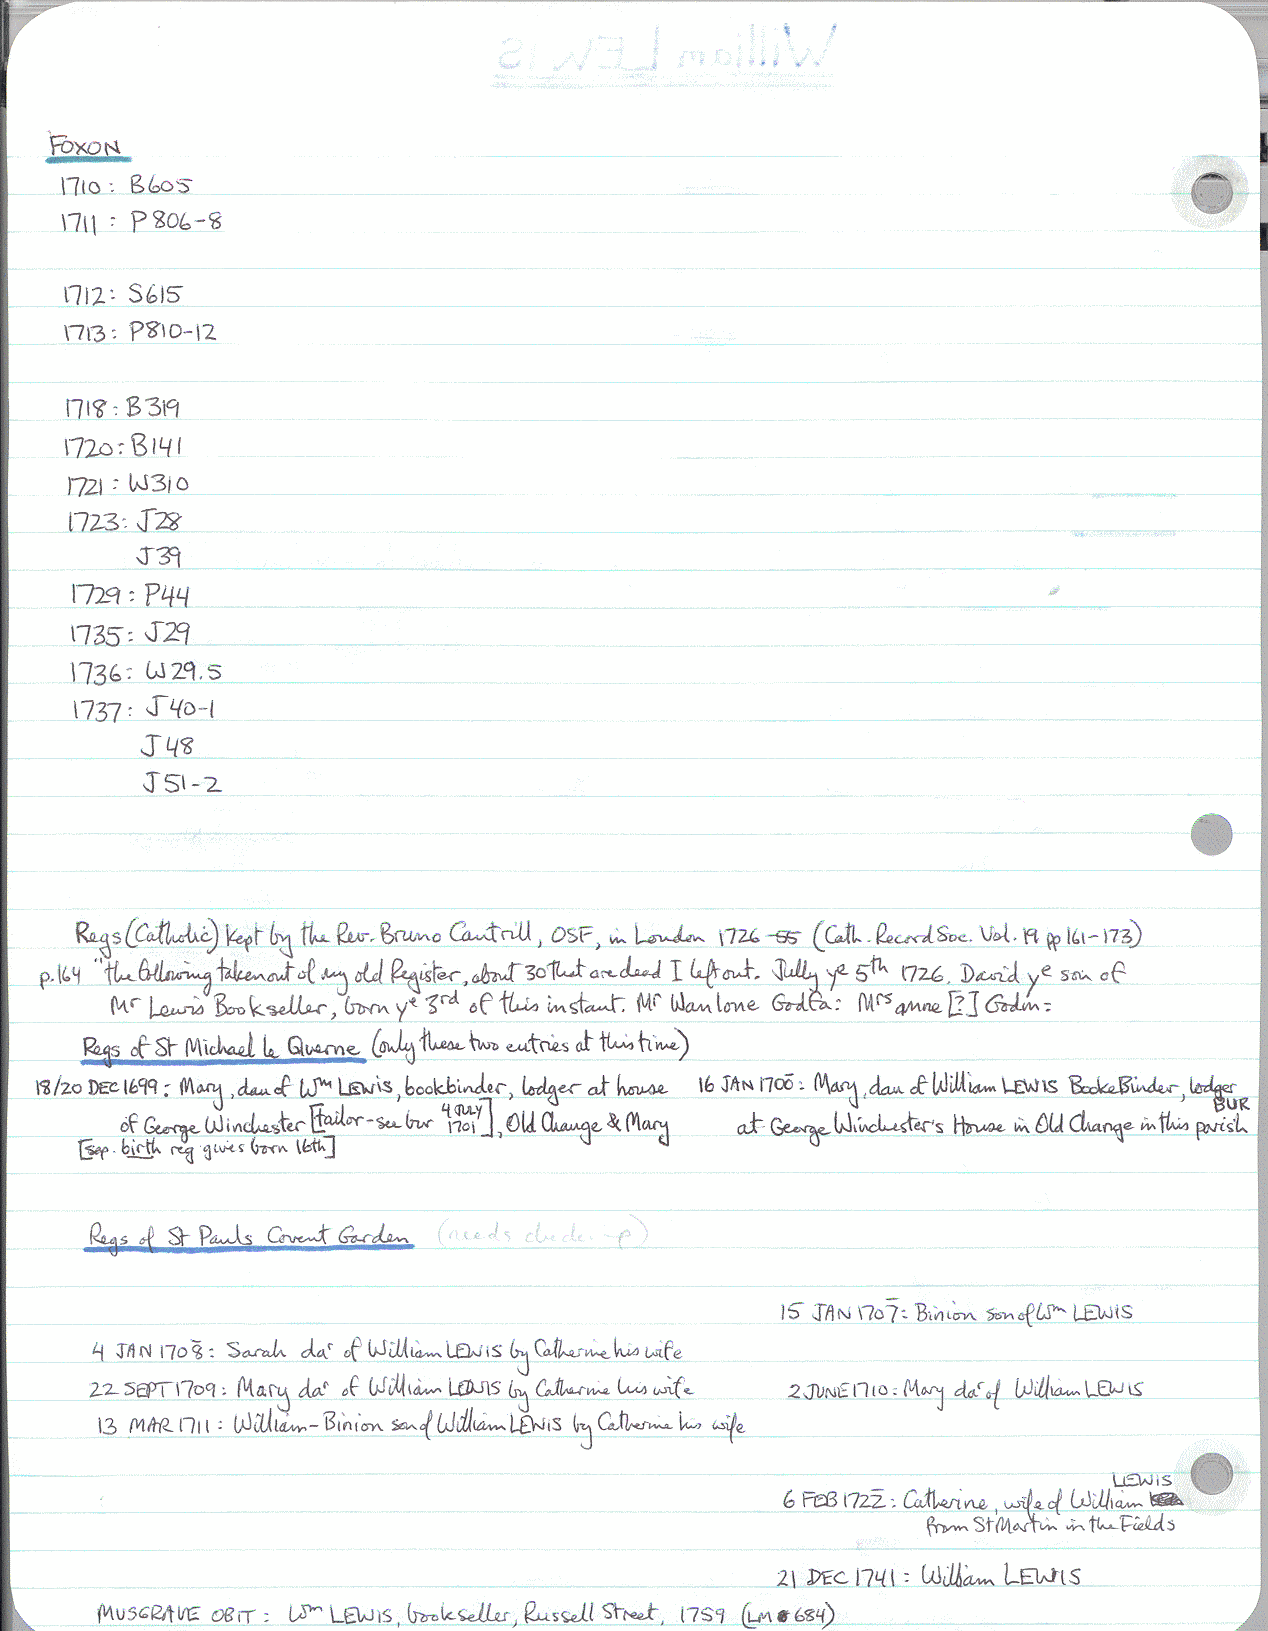 William LEWIS
FOXON
1710: B605
1711: P806-8
1712: S615
1713: P810-12
1718: B319
1720: B141
1721: W310
1723: J28
J39
1729: P44
1735: J29
1736: W29.5
1737: J40-1
J48
J51-2
Regs (Catholic) kept by the Rev. Bruno Cantrill, OSF, in London 1726-55 (Cath. Record Soc. Vol. 19 pp 161-173)
p.164 "the following taken out of my old Register, about 30 that are dead I left out. Jully ye 5th 1726, David ye son of
Mr Lewis Bookseller, born ye 3rd of this instant. Mr Wanlone Godfa: Mrs anne [?] Godm:
Regs of St Michael le Querne (only these two entries at this time)
18/20 DEC 1699: Mary, dau of Wm LEWIS, bookbinder, lodger at house
of George Winchester [tailor-see bur 4 JULY 1701], Old Change & Mary
[sep. birth reg gives born 16th]
16 JAN 1700: Mary, dau of William LEWIS BookeBinder, lodger
BUR
at George Winchester's House in Old Change in this parish
Regs of St Pauls Covent Garden (needs
15 JAN 1707: Binion son of Wm LEWIS
4 JAN 1708: Sarah dar of William LEWIS by Catherine his wife
22 SEPT 1709: Mary dar of William LEWIS by Catherine his wife
2 JUNE 1710: Mary dar of William LEWIS
13 MAR 1711: William-Binion son of William LEWIS by Catherine his wife
LEWIS
6 FEB 1722: Catherine, wife of William
from St Martin in the Fields
21 DEC 1741: William LEWIS
MUSGRAVE OBIT: Wm LEWIS, bookseller, Russell Street, 1759 (LM 684)